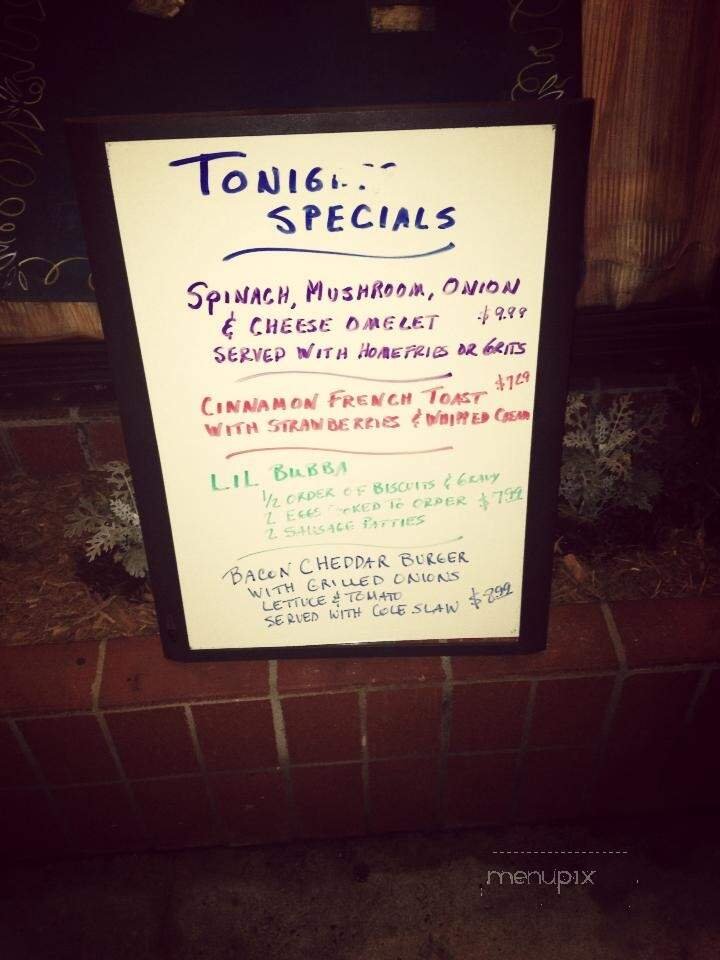 SPECIALS
SPINACH, MUSHROOM, ONION
& CHEESE OMELET $9.99
SERVED WITH HOMEFRIES OR GRITS
CINNAMON FRENCH TOAST $7.29
WITH STRAWBERRIES & WHIPPED CREAM
LIL BUBBA
1/2 ORDER OF BISCUITS & GRAVY
2 EGGS TO ORDER $7.99
2 SAUSAGE PATTIES
BACON CHEDDAR BURGER
WITH GRILLED ONIONS
LETTUCE & TOMATO
SERVED WITH COLE SLAW $8.99
menupix